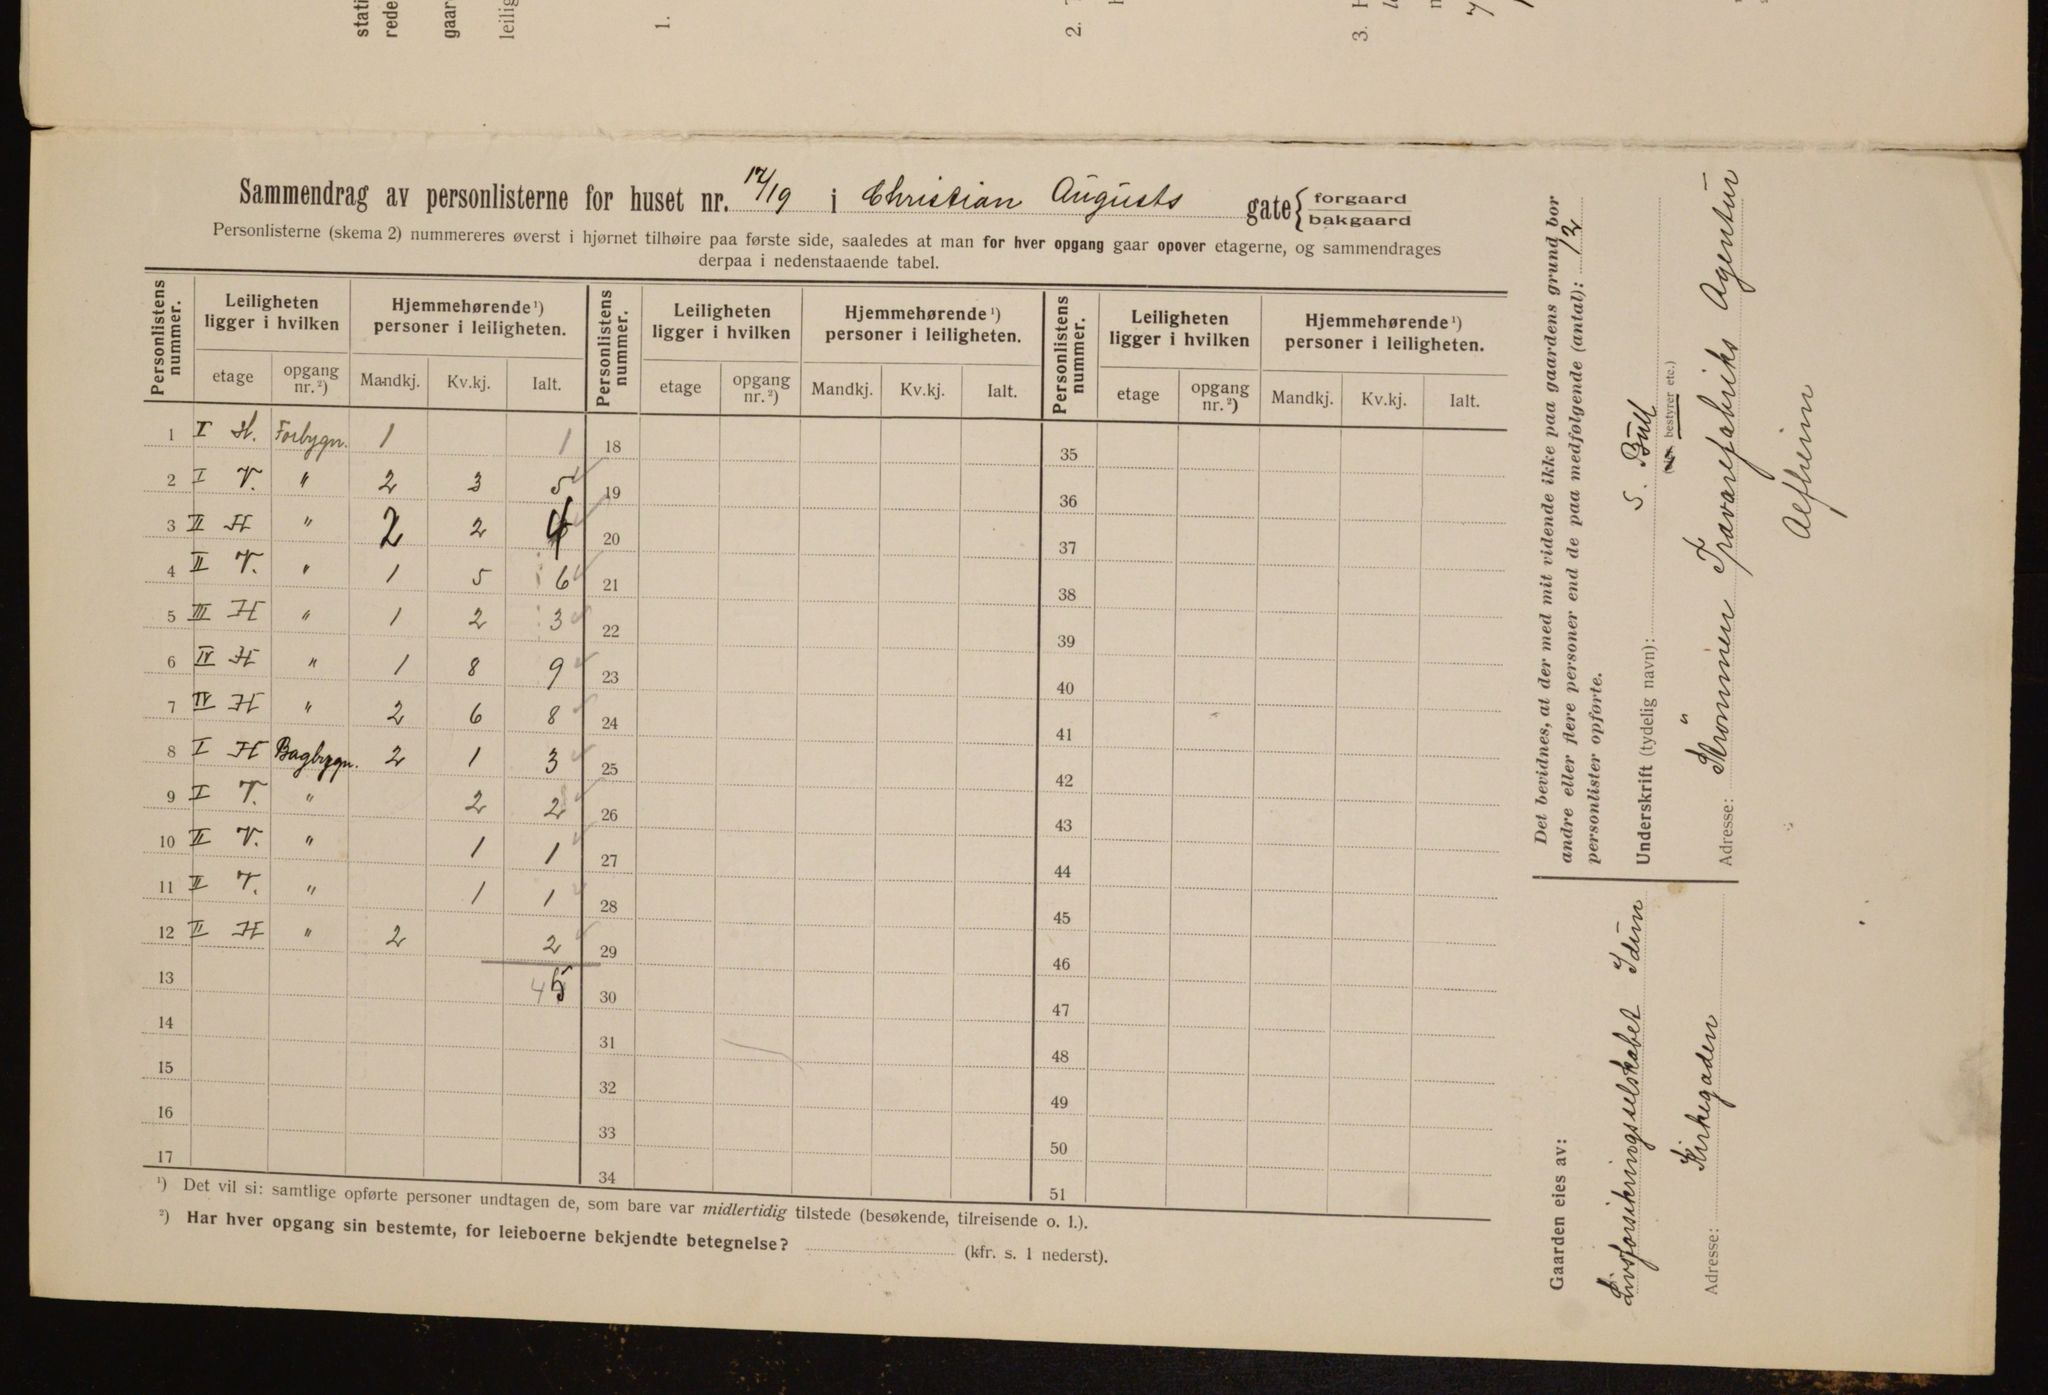 stati
rede
gaar
leilig
1.
2.
3.
Sammendrag av personlisterne for huset nr. 17/19 i Christian Augusts gate { forgaard bakgaard
Personlisterne (skema 2) nummereres øverst i hjørnet tilhøire paa første side, saaledes at man for hver opgang gaar opover etagerne, og sammendrages
derpaa i nedenstaaende tabel.
Personlistens nummer. Leiligheten ligger i hvilken Hjemmehørende ¹) personer i leiligheten. Personlistens nummer. Leiligheten ligger i hvilken Hjemmehørende ¹) personer i leiligheten. Personlistens nummer. Leiligheten ligger i hvilken Hjemmehørende ¹) personer i leiligheten.
etage opgang nr. ²) Mandkj. Kv.kj. Ialt. etage opgang nr. ²) Mandkj. Kv.kj. Ialt. etage opgang nr. ²) Mandkj. Kv.kj. Ialt.
1 I H. Forbygn. 1 1 18 35
2 I V. " 2 3 5 19 36
3 II H " 2 2 4 20 37
4 II V. " 1 5 6 21 38
5 III H " 1 2 3 22 39
6 IV H " 1 8 9 23 40
7 IV H " 2 6 8 24 41
8 I H Bagbygn. 2 1 3 25 42
9 I V. " 2 2 26 43
10 II V. " 1 1 27 44
11 II V. " 1 1 28 45
12 II H " 2 2 29 46
13 45 30 47
14 31 48
15 32 49
16 33 50
17 34 51
¹) Det vil si: samtlige opførte personer undtagen de, som bare var midlertidig tilstede (besøkende, tilreisende o. l.).
²) Har hver opgang sin bestemte, for leieboerne bekjendte betegnelse? (kfr. s. 1 nederst).
Det bevidnes, at der med mit vidende ikke paa gaardens grund bor
andre eller flere personer end de paa medfølgende (antal): 12
personlister opførte.
Underskrift (tydelig navn): S. Bull
bestyrer etc.)
Adresse: Strømmen Trævarefabriks Agentur
Alfheim
Gaarden eies av:
Livsforsikringsselskabet Idun
Adresse: Kirkegaden